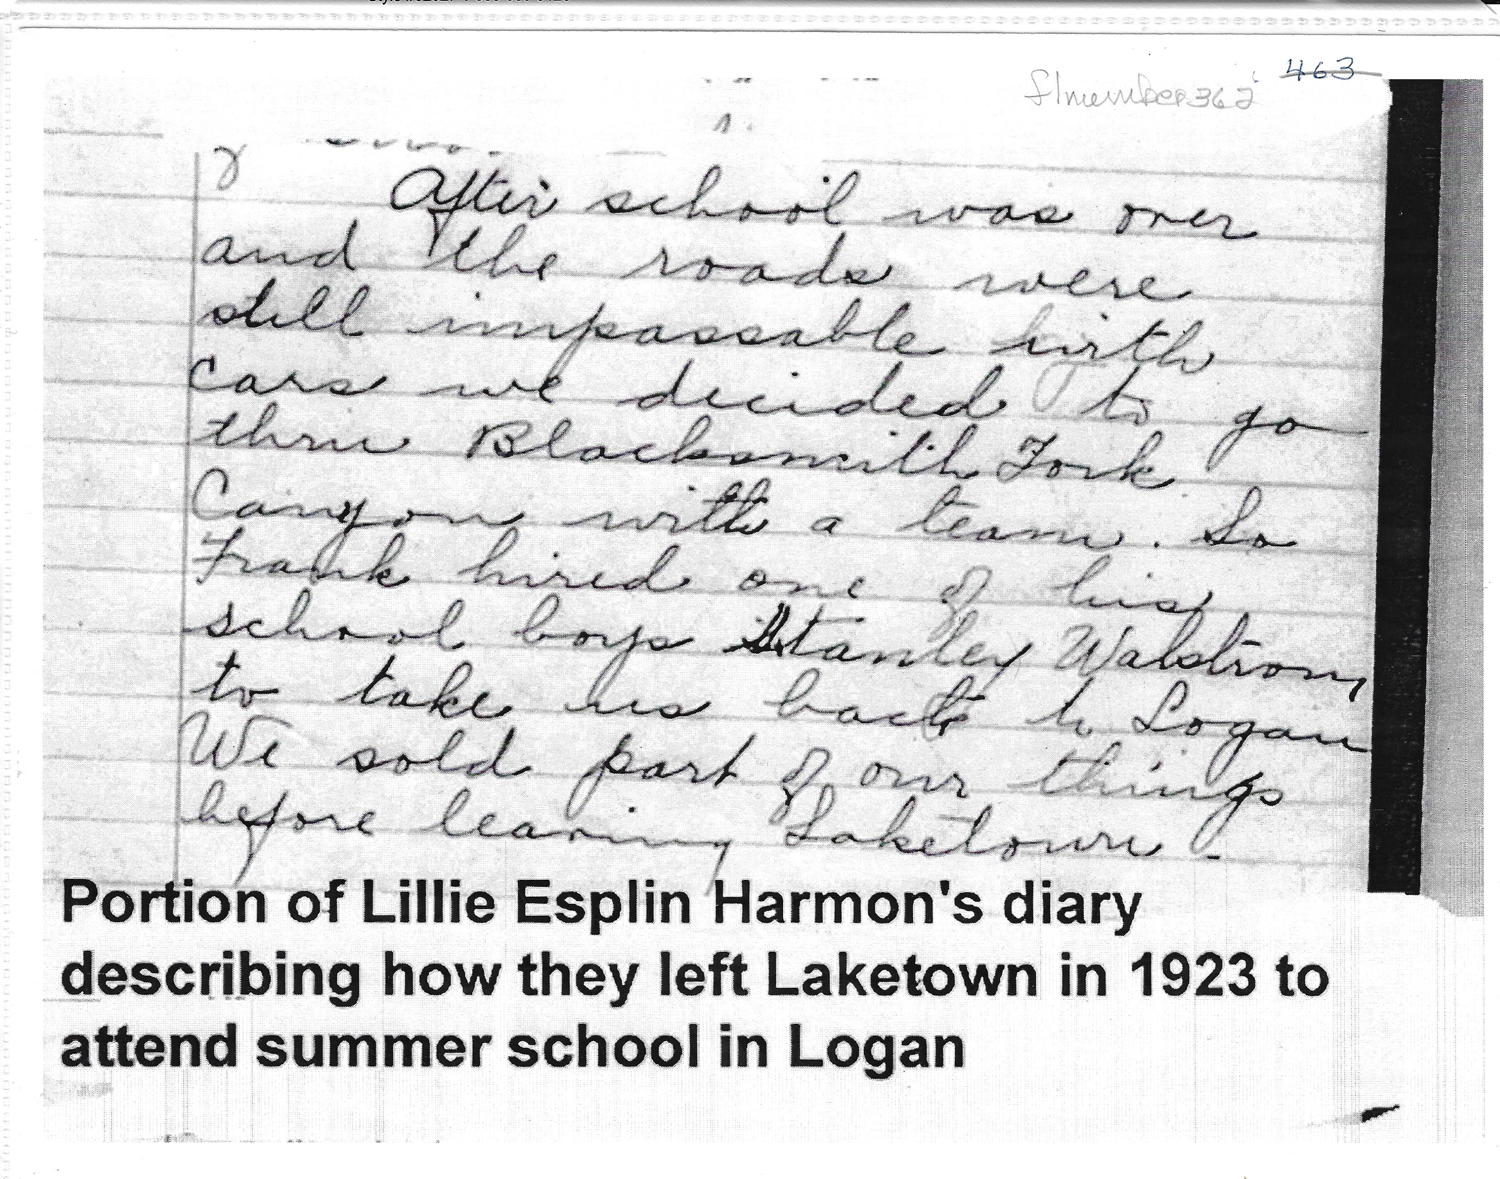 463
After school was over
and the roads were
still impassable with
cars we decided to go
thru Blacksmith Fork
Canyon with a team. So
Frank hired one of his
school boys Stanley Walstrom,
to take us back to Logan
We sold part of our things
before leaving Laketown.
Portion of Lillie Esplin Harmon's diary
describing how they left Laketown in 1923 to
attend summer school in Logan